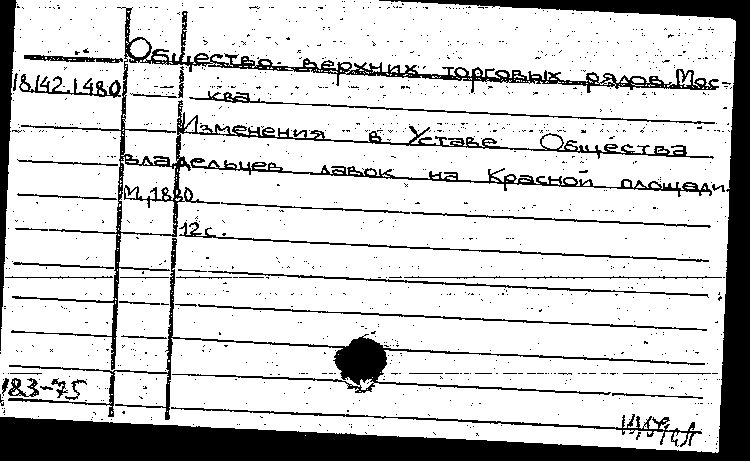 Общество верхних торговых рядов. Мос-
18.142.1.480 ква.
Изменения в Уставе Общества
владельцев лавок на Красной площади.
М., 1880.
12 с.
183-75